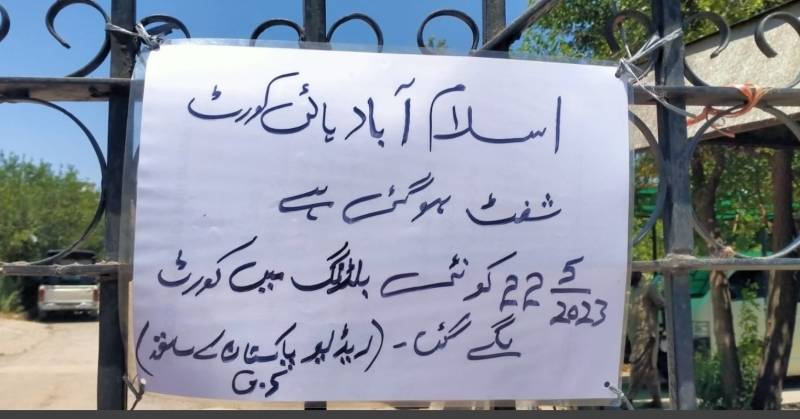 اسلام آباد ہائی کورٹ
شفٹ ہو گئی ہے
22 5/2023 کو نئے بلڈنگ میں کورٹ
لگے گی - (ریڈیو پاکستان کے ساتھ)